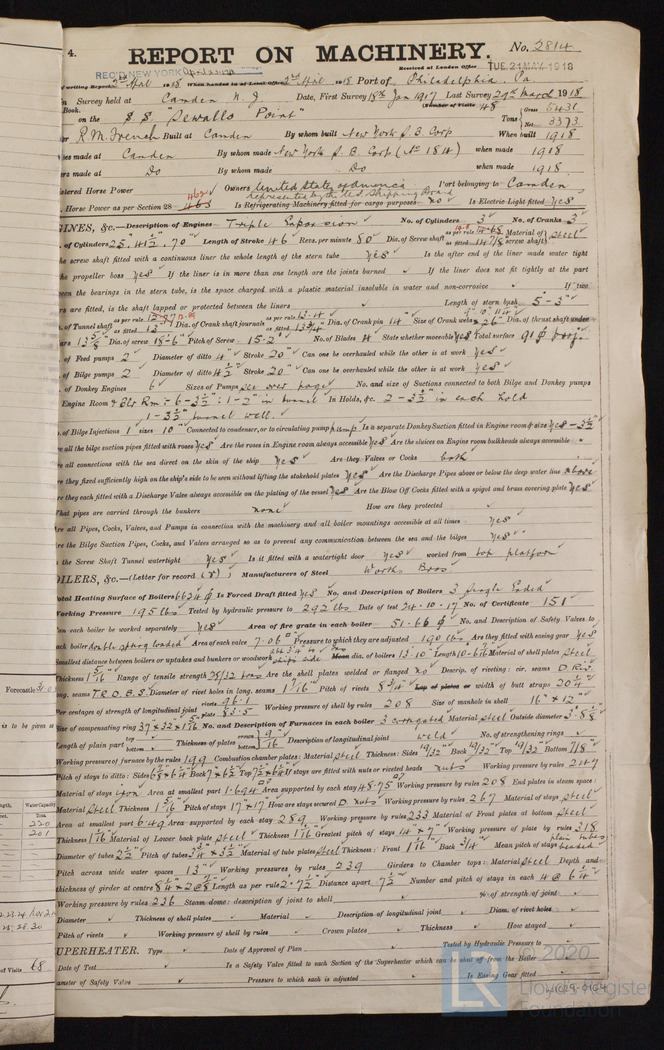 4.
REPORT ON MACHINERY.
No. 2814
REC'D NEW YORK
Received at London Office TUE. 21 MAY. 1918
Port of Philadelphia Pa
Survey held at Camden N.J. Date, First Survey 18th Jan 1917 Last Survey 29th March 1918
Book. (Number of Visits 48
on the S.S. "Sewalls Point" Tons Gross 5431 Net 3373
R.M. French Built at Camden By whom built New York S.B. Corp When built 1918
made at Camden By whom made New York S.B. Corp (No 1814) when made 1918
made at Do By whom made Do when made 1918
Horse Power Owners United States of America represented by the U.S. Shipping Board Port belonging to Camden
Horse Power as per Section 28 462 463 Is Refrigerating Machinery fitted for cargo purposes No Is Electric Light fitted Yes
GINES, &c.—Description of Engines Triple Expansion No. of Cylinders 3 No. of Cranks 3
of Cylinders 25, 41½, 70" Length of Stroke 46 Revs. per minute 80 Dia. of Screw shaft as per rule 14.68 as fitted 14 7/8 Material of screw shaft Steel
the screw shaft fitted with a continuous liner the whole length of the stern tube Yes Is the after end of the liner made water tight
the propeller boss Yes If the liner is in more than one length are the joints burned If the liner does not fit tightly at the part
een the bearings in the stern tube, is the space charged with a plastic material insoluble in water and non-corrosive If two
rs are fitted, is the shaft lapped or protected between the liners Length of stern bush 5-3"
of Tunnel shaft as per rule as fitted Dia. of Crank shaft journals as per rule 13.4 as fitted 13 3/4 Dia. of Crank pin 14" Size of Crank webs Dia. of thrust shaft under
ars 13 5/8" Dia. of screw 18-6" Pitch of Screw 15-2" No. of Blades 4 State whether moveable Yes Total surface
of Feed pumps 2 Diameter of ditto 4" Stroke 20" Can one be overhauled while the other is at work Yes
of Bilge pumps 2 Diameter of ditto 4½" Stroke 20" Can one be overhauled while the other is at work Yes
of Donkey Engines 6 Sizes of Pumps see over page No. and size of Suctions connected to both Bilge and Donkey pumps
Engine Room & Blr Rm: 6-3½": 1-2" in tunnel In Holds, &c. 2-3½" in each hold
1-3½" tunnel well.
of Bilge Injections 1 sizes 10" Connected to condenser, or to circulating pump Is a separate Donkey Suction fitted in Engine room & size Yes-3½
re all the bilge suction pipes fitted with roses Yes Are the roses in Engine room always accessible Yes Are the sluices on Engine room bulkheads always accessible
re all connections with the sea direct on the skin of the ship Yes Are they Valves or Cocks both
re they fixed sufficiently high on the ship's side to be seen without lifting the stokehold plates Yes Are the Discharge Pipes above or below the deep water line above
re they each fitted with a Discharge Valve always accessible on the plating of the vessel Yes Are the Blow Off Cocks fitted with a spigot and brass covering plate Yes
What pipes are carried through the bunkers none How are they protected
re all Pipes, Cocks, Valves, and Pumps in connection with the machinery and all boiler mountings accessible at all times Yes
re the Bilge Suction Pipes, Cocks, and Valves arranged so as to prevent any communication between the sea and the bilges Yes
s the Screw Shaft Tunnel watertight Yes Is it fitted with a watertight door Yes worked from top platform
OILERS, &c.—(Letter for record (S)) Manufacturers of Steel Worth Bros
Total Heating Surface of Boilers 6624 Is Forced Draft fitted Yes No. and Description of Boilers 3 Single Ended
Working Pressure 195 lbs Tested by hydraulic pressure to 292 lbs Date of test 24-10-17 No. of Certificate 151
Can each boiler be worked separately Yes Area of fire grate in each boiler 51.66 No. and Description of Safety Valves to
each boiler double spring loaded Area of each valve 7.06 Pressure to which they are adjusted 190 lbs Are they fitted with easing gear Yes
Smallest distance between boilers or uptakes and bunkers or woodwork ship's side dia. of boilers 13-10" Length Material of shell plates Steel
Thickness 1 5/16 Range of tensile strength 28/32 tons Are the shell plates welded or flanged no Descrip. of riveting: cir. seams D Riv.
long. seams T.R.D.B.S. Diameter of rivet holes in long. seams 1 7/16" Pitch of rivets Lap of plates or width of butt straps 20 1/4
Per centages of strength of longitudinal joint rivets 96.1 plate 83.5 Working pressure of shell by rules 208 Size of manhole in shell 16" x 12"
Size of compensating ring 37 x 32 x 1 5/16 No. and Description of Furnaces in each boiler 3 corrugated Material Steel Outside diameter
Length of plain part top bottom Thickness of plates crown bottom 9/16" Description of longitudinal joint weld No. of strengthening rings
Working pressure of furnace by the rules 199 Combustion chamber plates: Material Steel Thickness: Sides 19/32" Back 19/32" Top 19/32" Bottom 7/8"
Pitch of stays to ditto: Sides Back Top If stays are fitted with nuts or riveted heads nuts Working pressure by rules 217
Material of stays iron Area at smallest part 1.694 Area supported by each stay 48.75 Working pressure by rules 208 End plates in steam space:
Material Steel Thickness 1 5/16" Pitch of stays 17" x 17" How are stays secured D. nuts Working pressure by rules 267 Material of stays Steel
Area at smallest part 6.49 Area supported by each stay 289 Working pressure by rules 233 Material of Front plates at bottom Steel
Thickness 1 1/16" Material of Lower back plate Steel Thickness Greatest pitch of stays 14 x 7" Working pressure of plate by rules 318
Diameter of tubes 2½" Pitch of tubes 3¾ x 3½" Material of tube plates Steel Thickness: Front Back 3/4" Mean pitch of stays plain tubes beaded
Pitch across wide water spaces 13" Working pressures by rules 239 Girders to Chamber tops: Material Steel Depth and
thickness of girder at centre Length as per rule Distance apart 7½" Number and pitch of stays in each 4 @ 6¼"
Working pressure by rules 236 Steam dome: description of joint to shell % of strength of joint
Diameter Thickness of shell plates Material Description of longitudinal joint Diam. of rivet holes
Pitch of rivets Working pressure of shell by rules Crown plates Thickness How stayed
UPERHEATER. Type Date of Approval of Plan Tested by Hydraulic Pressure to
Date of Test Is a Safety Valve fitted to each Section of the Superheater which can be shut off from the Boiler
iameter of Safety Valve Pressure to which each is adjusted Is Easing Gear fitted
Forecastle
is to be given
Water Capacity
230
201
of Visits 68
© 2020
LR
Lloyd's Register
Foundation